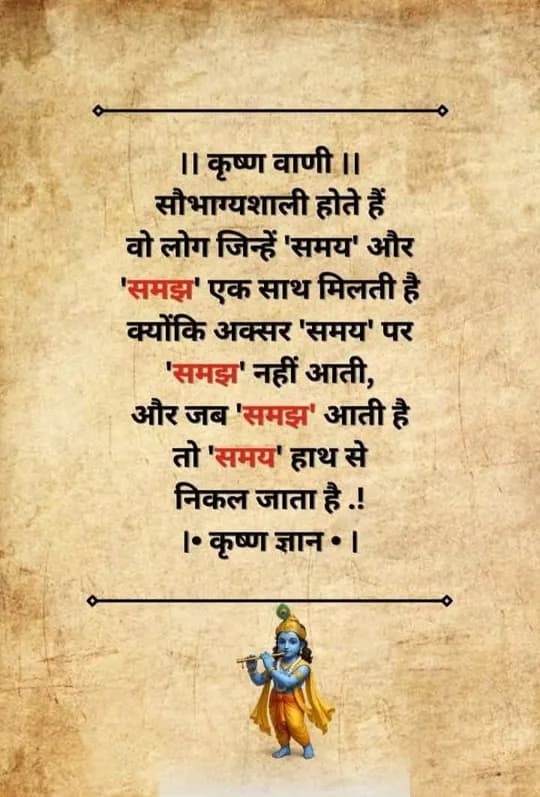 || कृष्ण वाणी ||
सौभाग्यशाली होते हैं
वो लोग जिन्हें 'समय' और
'समझ' एक साथ मिलती है
क्योंकि अक्सर 'समय' पर
'समझ' नहीं आती,
और जब 'समझ' आती है
तो 'समय' हाथ से
निकल जाता है .!
|• कृष्ण ज्ञान • |